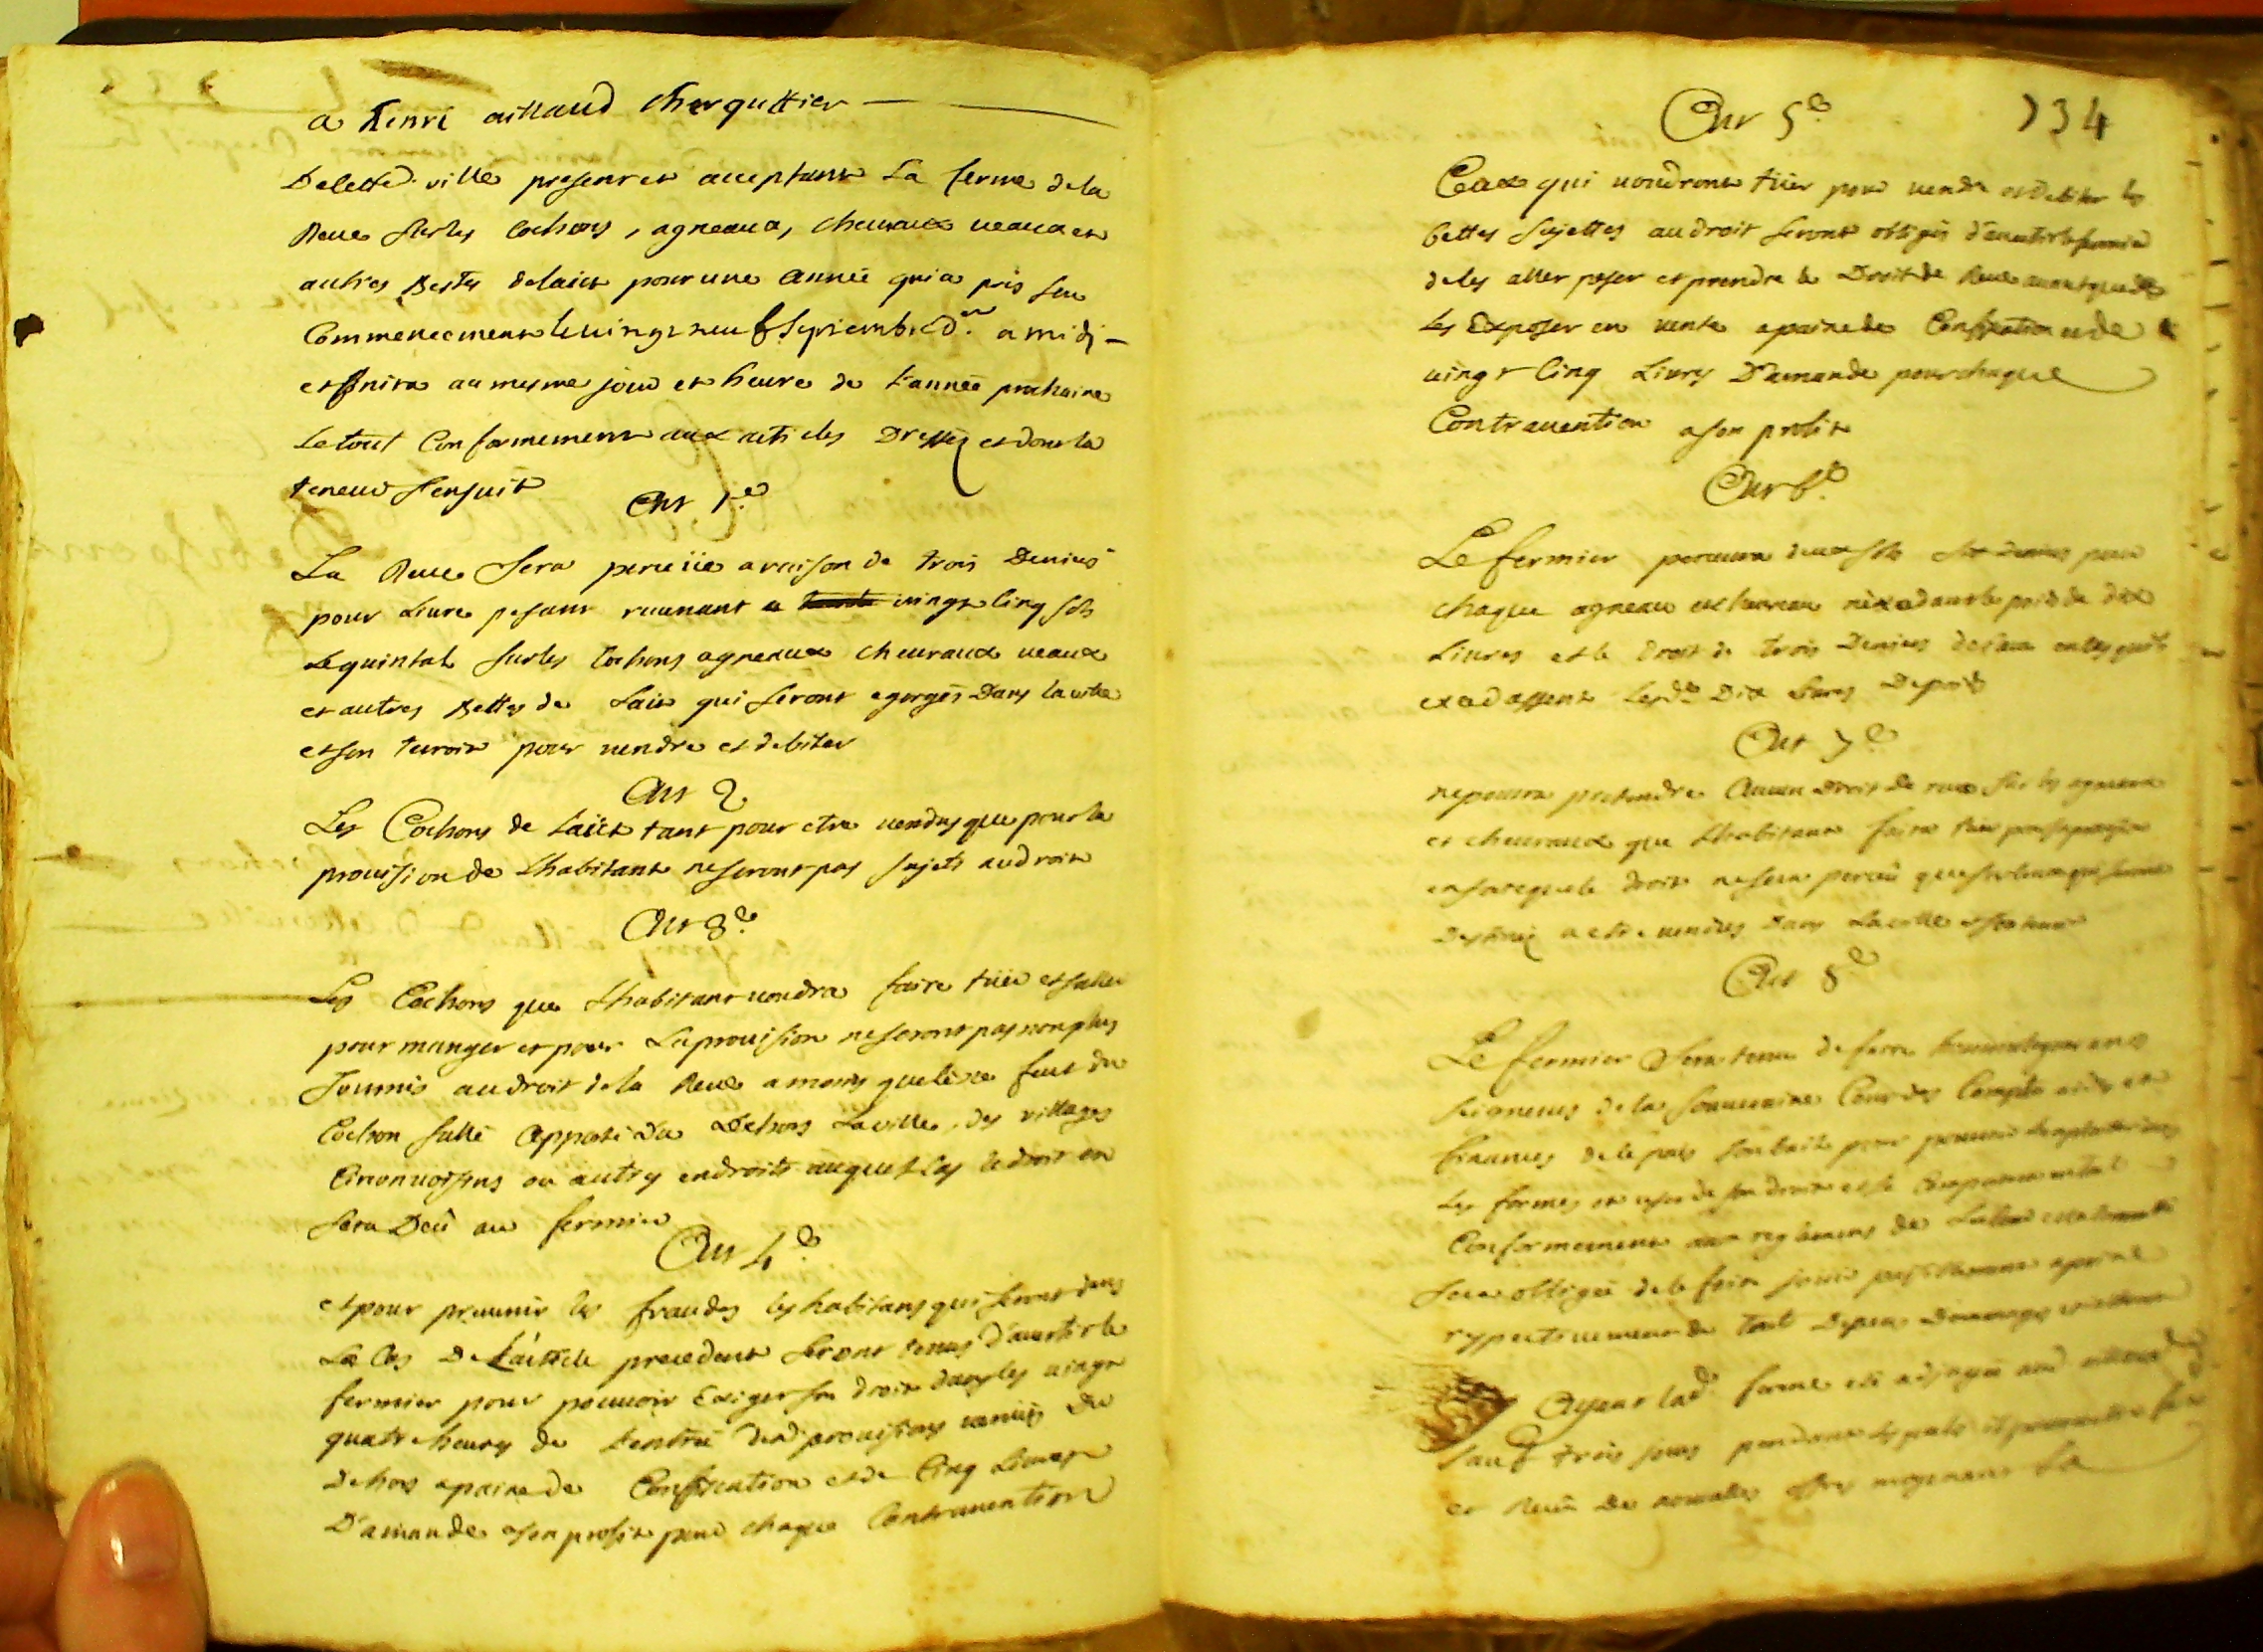 a henri aillaud cherquttier
De cette ville present et acceptant La ferme de la
Reue sur les Cochons, agneaux, cheuraux ueaux et
autres Bestes de laict pour une année qui a pris son
Commencement le uingt neuf Septembre d.er a midi
et finira au mesme jour et heure de L'année prochaine
Le tout Conformement aux articles Dressés et dont la
teneur S'ensuit
Art 1.e
La Reue Sera perceüe a raison de trois Deniers
pour Liure pesant reuenant a uingt Cinq sols
Le quintal sur les Cochons agneaux cheuraux ueaux
et autres Bettes de Laict qui seront egorgés Dans la ville
et son terroir pour uendre et debiter
Art 2
Les Cochons de Laict tant pour etre uendus que pour la
prouision de Lhabitant ne seront pas sujets au droit
Art 3.e
Les Cochons que Lhabitant uoudra faire tüer et saller
pour manger et pour La prouision ne seront pas non plus
Soumis au droit de la Reue a moins que le fut du
Cochon sallé Apporté du Dehors La ville, des villages
Circonuoisins ou autres endroits auquel Cas le droit en
sera Deü au fermier
Art 4.e
et pour preuenir les fraudes les habitans qui seront dans
Le Cas De L'article precedent seront tenus d'auertir le
fermier pour pouuoir Exiger son droit dans les uingt
quatre heures de L'entrée desd prouisions uenües du
Dehors a paine de Confiscation et de Cinq Liures
D'amande a son profit pour chaque Contrauention
734
Art 5.e
Ceux qui uoudront tüer pour uendre et debiter les
bettes sujettes au droit seront obligés d'auertir le fermier
de les aller peser et prendre le Droit de Reue auant que de
Les Exposer en uente a paine de Confiscation et de
uingt Cinq Liures D'amande pour chaque
Contrauention a son profit
Art 6.e
Le fermier perceura deux sols six deniers pour
chaque agneau et cheureau n'excedant le poids de dix
Liures et le Droit de trois Deniers de ceux
excedassent Lesd. Dix Liures De poids
Art 7.e
ne pourra pretendre Aucun Droit de reue sur les agneaux
et cheuraux que Lhabitant faira tüer pour sa prouision
en sorte que le droit ne sera perceü que sur Ceux qui seront
Destinés a etre uendus Dans La ville et son terroir
Art 8.e
Le fermier Sera tenu de faire
seigneurs de la Souueraine Cour des Comptes aides et
finances de le pais
Les formes et user de son droit et se Comporter
Conformement aux reglemens de
sera obligée de le faire jouir paisiblement a paine
respectiuement de tout Depens Dommages
Ayant lad. ferme eté adjugée aud aillaud
sauf trois jours pendant lesquels il
et Receü De nouuelles offres moyenant La